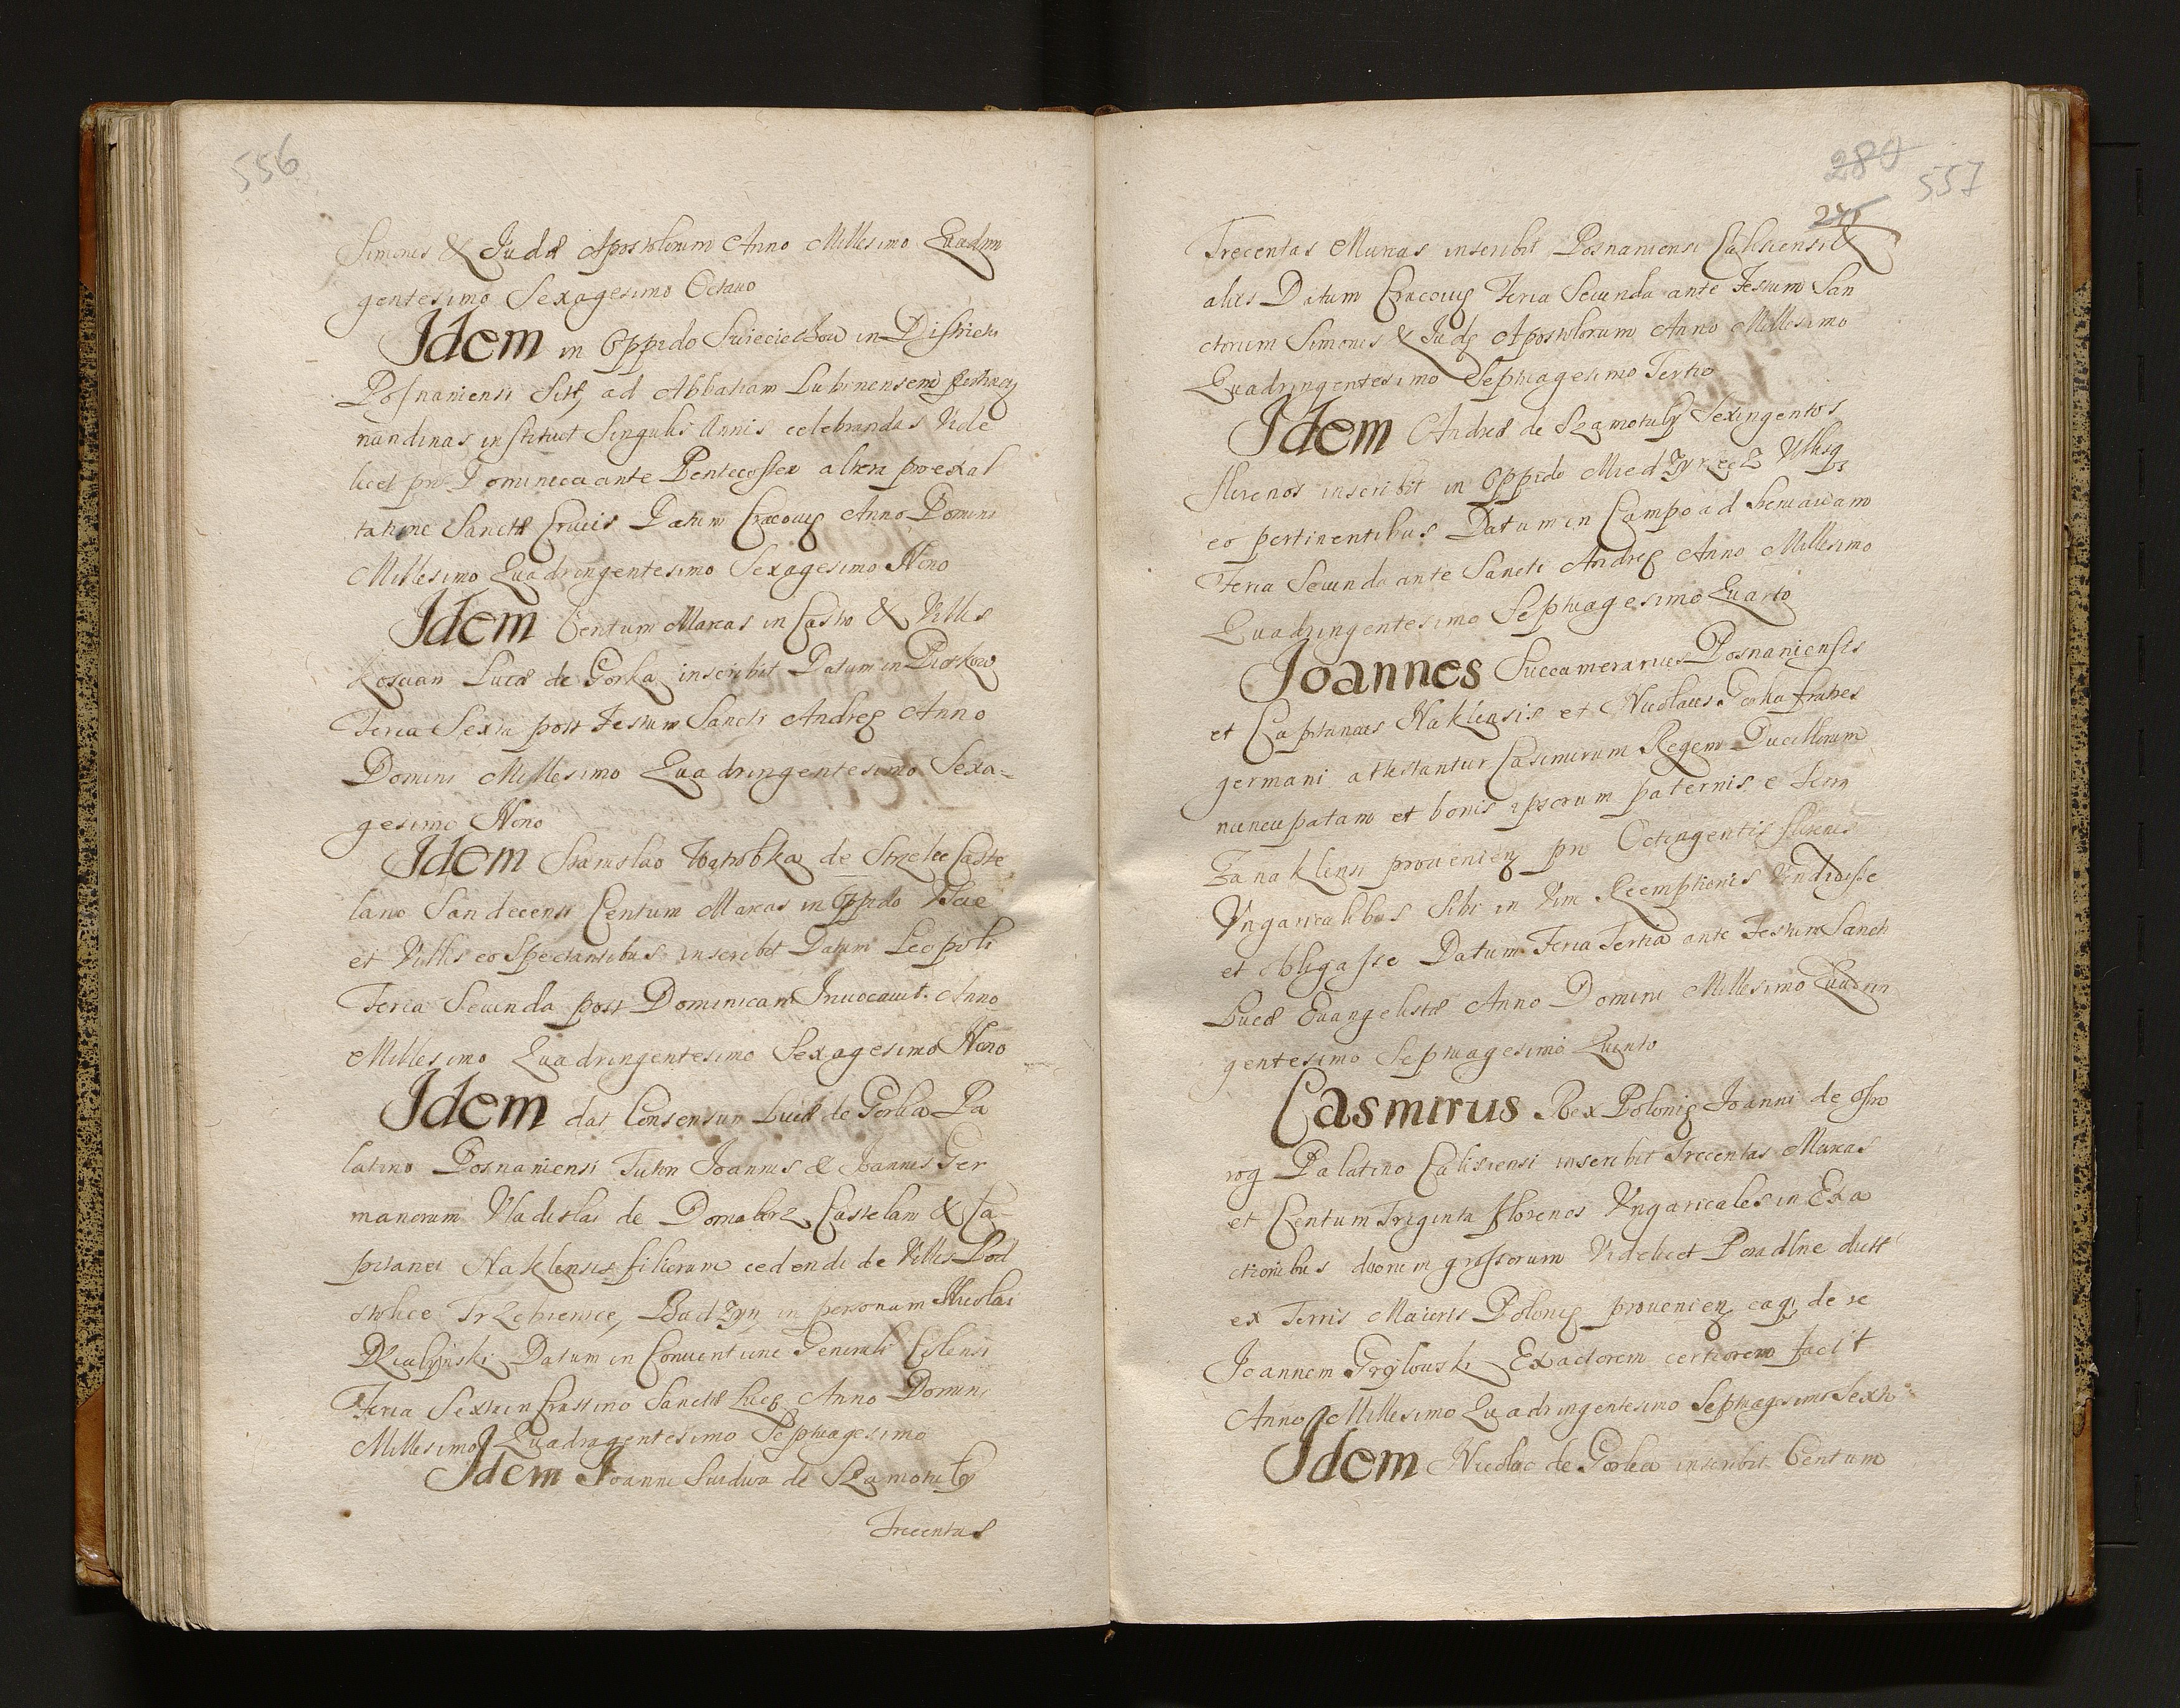 556
Simonis & Judæ Apostolorum Anno Millesimo Quadrin
gentesimo Sexagesimo Octauo
Idem in Oppido Swieciechow in Districtu
Posnaniensi Sito, ad Abbatiam Lubinensem
nundinas instituit Singulis Annis celebrandas Vide
licet pro Dominica ante Pentecosten altera pro exal
tatione Sanctæ Crucis Datum Cracouię Anno Domini
Millesimo Quadringentesimo Sexagesimo Nono
Idem Centum Marcas in Castro & Villis
Koscian Lucæ de Gorka inscribit Datum in Piotkow
Feria Sexta post Festum Sancti Andreę Anno
Domini Millesimo Quadringentesimo Sexa=
gesimo Nono
Idem Stanislao Wątrobka de Strzelce Caste
lano Sandecensi Centum Marcas in Oppido Uscie
et Villis eo Spectantibus inscribit Datum Leopoli
Feria Secunda post Dominicam Inuocauit Anno
Millesimo Quadringentesimo Sexagesimo Nono
Idem dat Consensum Lucæ de Gorka Pa
latino Posnaniensi Tutori Joannis & Joannis Ger
manorum Vladislai de Domaborz Castelani & Ca-
pitanei Naklensis filiorum cedendi de Villis Pod
stolice Trzebienice, Badzyn in personam Nicolai
Dzialÿnski Datum in Conuentione Generali Colensi
Feria Sexta in Crastino Sanctæ Lucię Anno Domini
Millesimo Quadragentesimo Septuagesimo
Idem Joanni Swidwa de Szamotuły
Trecentas
280 557
271
Trecentas Marcas inscribit Posnaniensi Calisiensi &
aliis Datum Cracouię Feria Secunda ante Festum San
ctorum Simonis & Judę Apostolorum Anno Millesimo
Quadringentesimo Septuagesimo Tertio
Idem Andreæ de Szamotuły Sexingentos
florenos inscribit in Oppido Miedzyrzecz Villisq
eo pertinentibus Datum in Campo ad
Feria Secunda ante Sancti Andreę Anno Millesimo
Quadringentesimo Septuagesimo Quarto
Joannes Succamerarius Posnaniensis
et Capitaneus Naklensis et Nicolaus Gorka fratres
germani attestantur Casimirum Regem Ducillorum
nuncupatam et bonis ipsorum paternis e terra
Zanaklensi prouenien pro Octingentis florenis
Vngaricalibus Sibi in Vim Reemptionis Vendidisse
et obligasse Datum Feria Tertia ante Festum Sancti
Lucæ Euangelistæ Anno Domini Millesimo Quadrin
gentesimo Septuagesimo Quinto
Casmirus Rex Polonię Joanni de Ostro
rog Palatino Calisiensi inscribit Trecentas Marcas
et Centum Triginta florenos Vngaricales in Exa
ctionibus duorum grossorum Videlicet Poradlne dictæ
ex Terris Maioris Polonię prouenien eaq de re
Joannem Grÿlouski Exactorem certiorem facit
Anno Millesimo Quadringentesimo Septuagesimo Sexto
Idem Nicolao de Gorka inscribit Centum